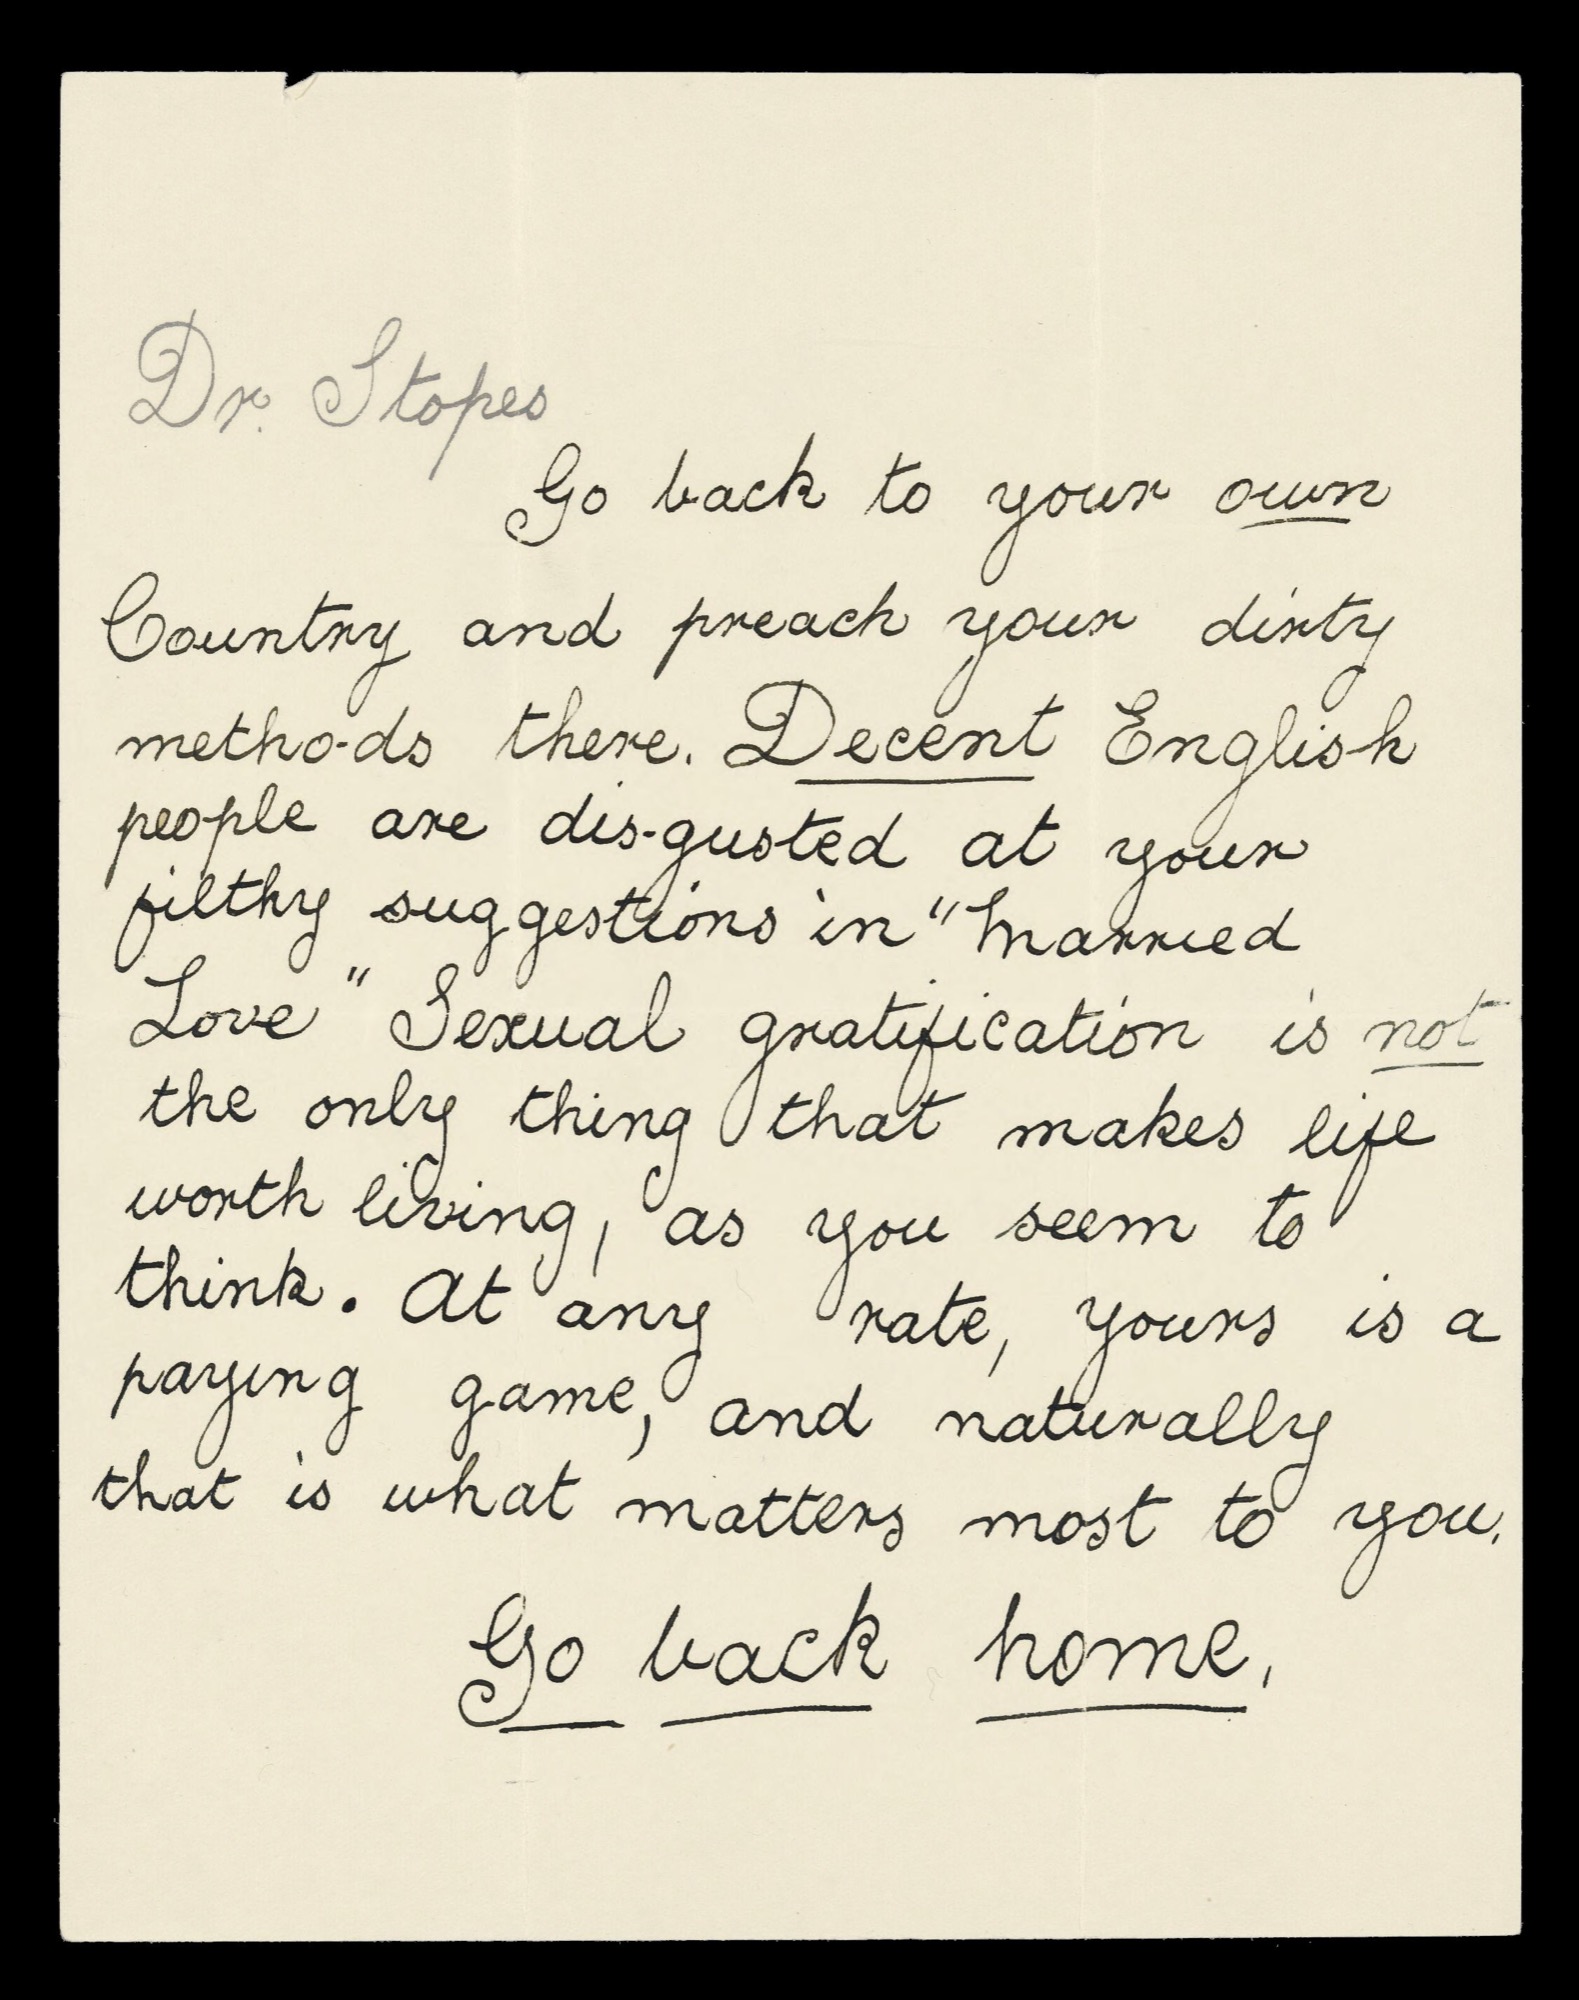 Dr. Stopes
Go back to your own
Country and preach your dirty
methods there. Decent English
people are dis-gusted at your
filthy suggestions in "Married
Love" Sexual gratification is not
the only thing that makes life
worth living, as you seem to
think. At any rate, yours is a
paying game, and naturally
that is what matters most to you.
Go back home.